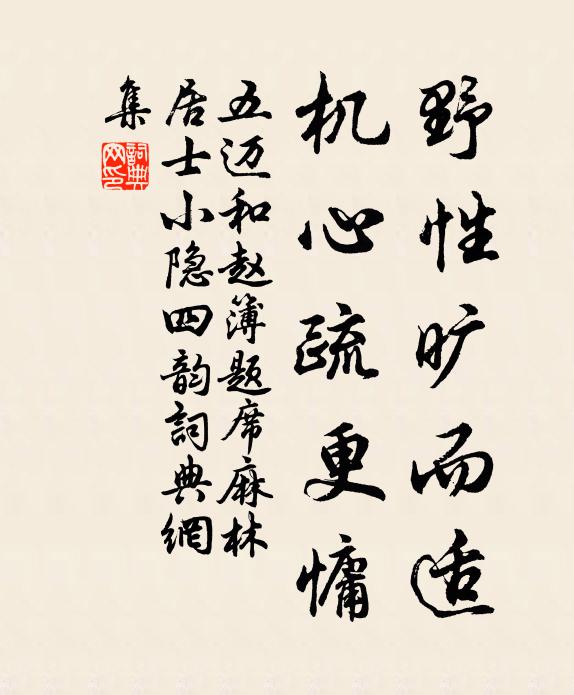 野性旷而适
机心疏更慵
五迈和赵簿题席麻林
居士小隐四韵詞典網
集
詞典
网印